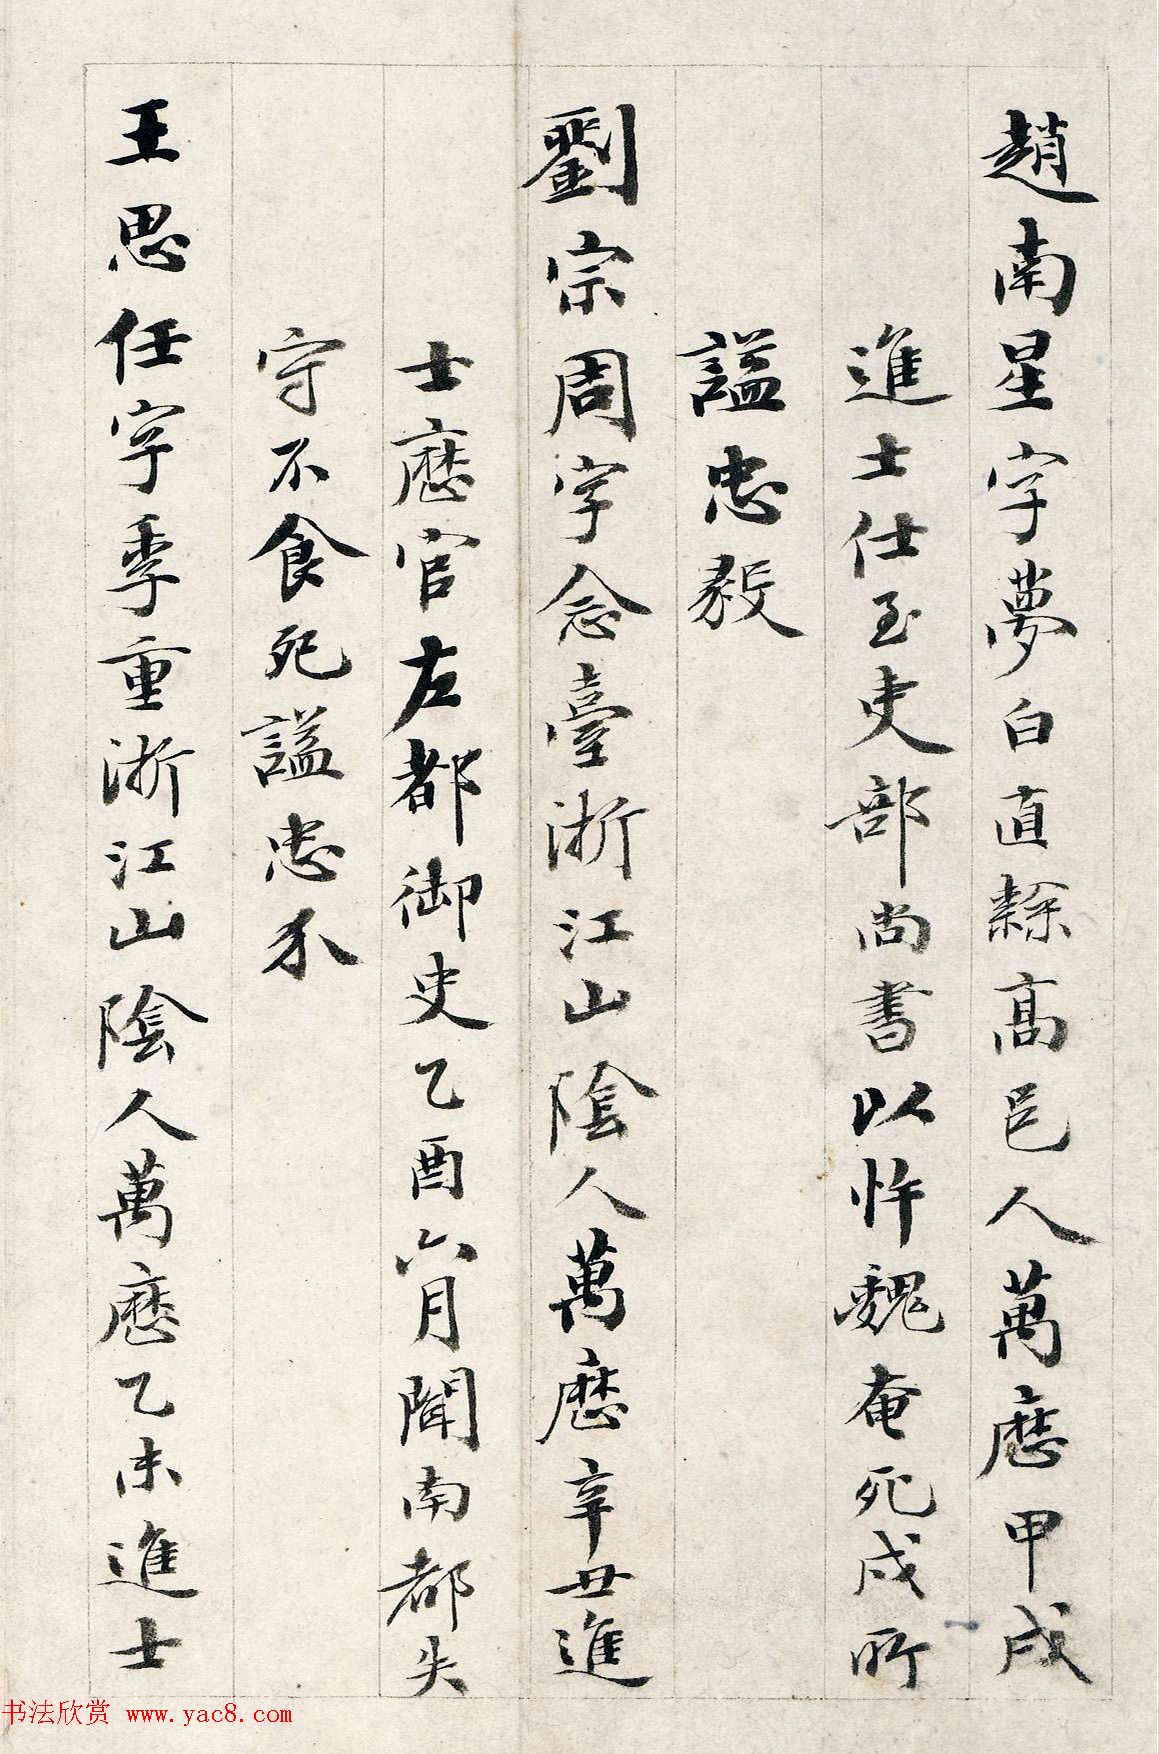 趙南星字夢白直隸高邑人萬曆甲戌
進士仕至吏部尚書以忤魏奄死戍所
諡忠毅
劉宗周字念臺浙江山陰人萬曆辛丑進
士歷官左都御史乙酉六月聞南都失
守不食死諡忠介
王思任字季重浙江山陰人萬曆乙未進士
书法欣赏 www.yac8.com